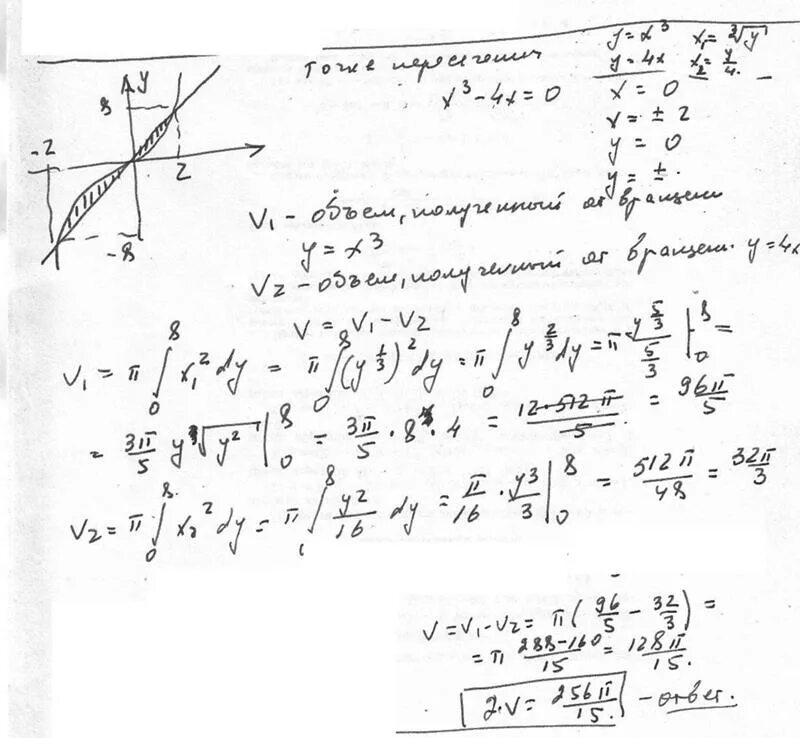 y = x³ x₁ = ∛y
Точки пересечения y = 4x x₂ = y/4
x³ - 4x = 0 x = 0
x = ± 2
y = 0
y = ±
y
8
-2
2
-8
V₁ - объем, полученный от вращени
y = x³
V₂ - объем, полученный от вращен. y = 4x
V = V₁ - V₂
V₁ = π ∫₀⁸ x₁² dy = π ∫₀⁸ (y^(1/3))² dy = π ∫₀⁸ y^(2/3) dy = π y^(5/3)/(5/3) |₀⁸ =
= 3π/5 y ∛y² |₀⁸ = 3π/5 · 8 · 4 = 12·512 π/5 = 96π/5
V₂ = π ∫₀⁸ x₂² dy = π ∫⁸ y²/16 dy = π/16 · y³/3 |₀⁸ = 512π/48 = 32π/3
V = V₁ - V₂ = π (96/5 - 32/3) =
= π (288-160)/15 = 128π/15.
2·V = 256π/15. - ответ.